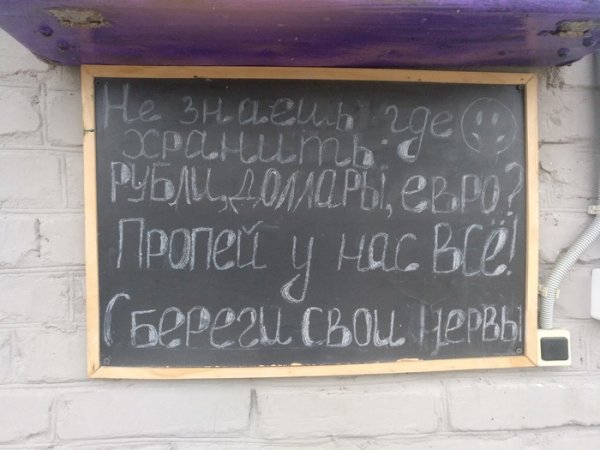 Не знаешь где
хранить
рубли, доллары, евро?
Пропей у нас всё!
Сбереги свои нервы